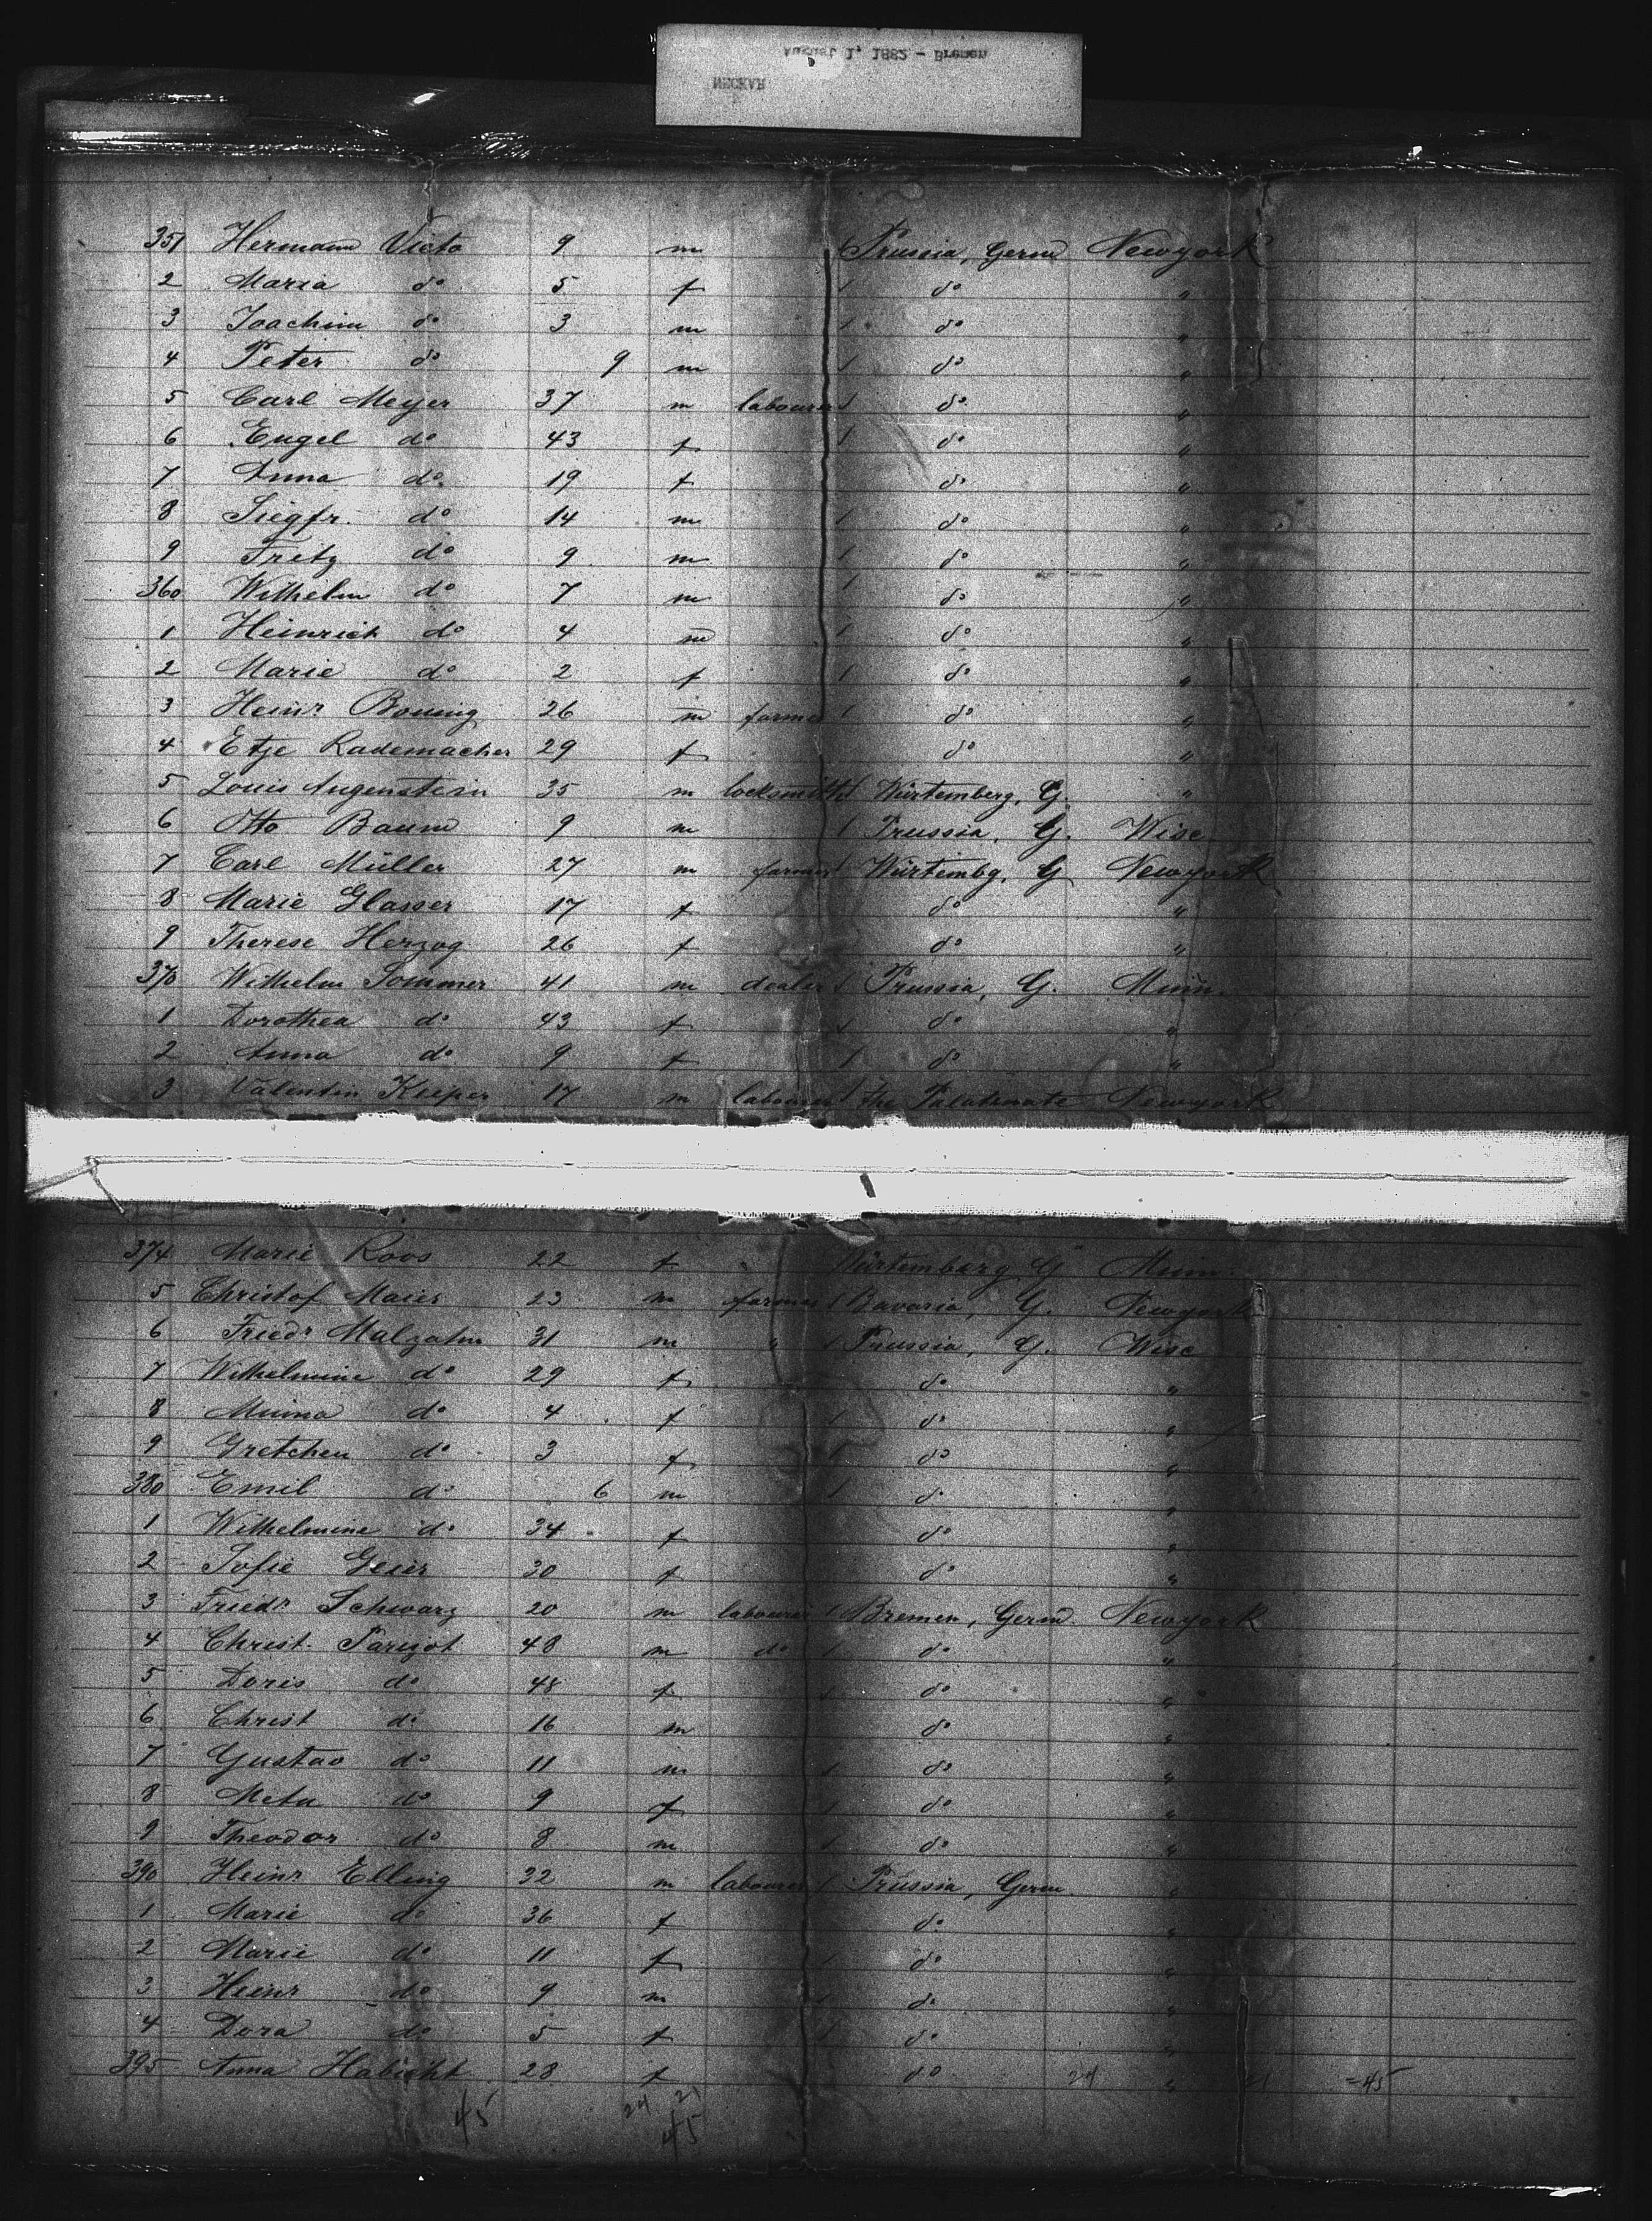 August 1, 1882 - Bremen
NECKAR
351 Hermann Victo 9 m Prussia, Germ Newyork
2 Maria do 5 f do "
3 Joachim do 3 m do "
4 Peter do 9 m do "
5 Carl Meyer 37 m labourer do "
6 Engel do 43 f do "
7 Anna do 19 f do "
8 Siegfr. do 14 m do "
9 Fritz do 9 m do "
360 Wilhelm do 7 m do "
1 Heinrich do 4 m do "
2 Marie do 2 f do "
3 Heinr Bouing 26 m farmer do "
4 Etje Rademacher 29 f do "
5 Louis Augenstein 35 m locksmith Würtemberg, G. "
6 Otto Baum 9 m Prussia, G. Wisc
7 Carl Müller 27 m farmer Würtembg, G Newyork
8 Marie Glasser 17 f do "
9 Therese Herzog 26 f do "
370 Wilhelm Sommer 41 m dealer Prussia, G. Minn.
1 Dorothea do 43 f do "
2 Anna do 9 f do "
3 Valentin Kieper 17 m labourer the Palatinate Newyork
374 Marie Roos 22 f " Würtemberg G Minn.
5 Christof Maier 23 m farmer Bavaria, G. Newyork
6 Friedr Malzahn 31 m " Prussia, G. Wisc
7 Wilhelmine do 29 f do "
8 Minna do 4 f do "
9 Gretchen do 3 f do "
380 Emil do 6 m do "
1 Wilhelmine do 34 f do "
2 Sofie Geier 30 f do "
3 Friedr Schwarz 20 m labourer Bremen, Germ Newyork
4 Christ. Parizot 48 m do do "
5 Doris do 48 f do "
6 Christ do 16 m do "
7 Gustav do 11 m do "
8 Meta do 9 f do "
9 Theodor do 8 m do "
390 Heinr Elling 32 m labourer Prussia, Germ. "
1 Marie do 36 f do "
2 Marie do 11 f do "
3 Heinr do 9 m do "
4 Dora do 5 f do "
395 Anna Habicht 28 f do 24 " 21 =45
45 24 21
45